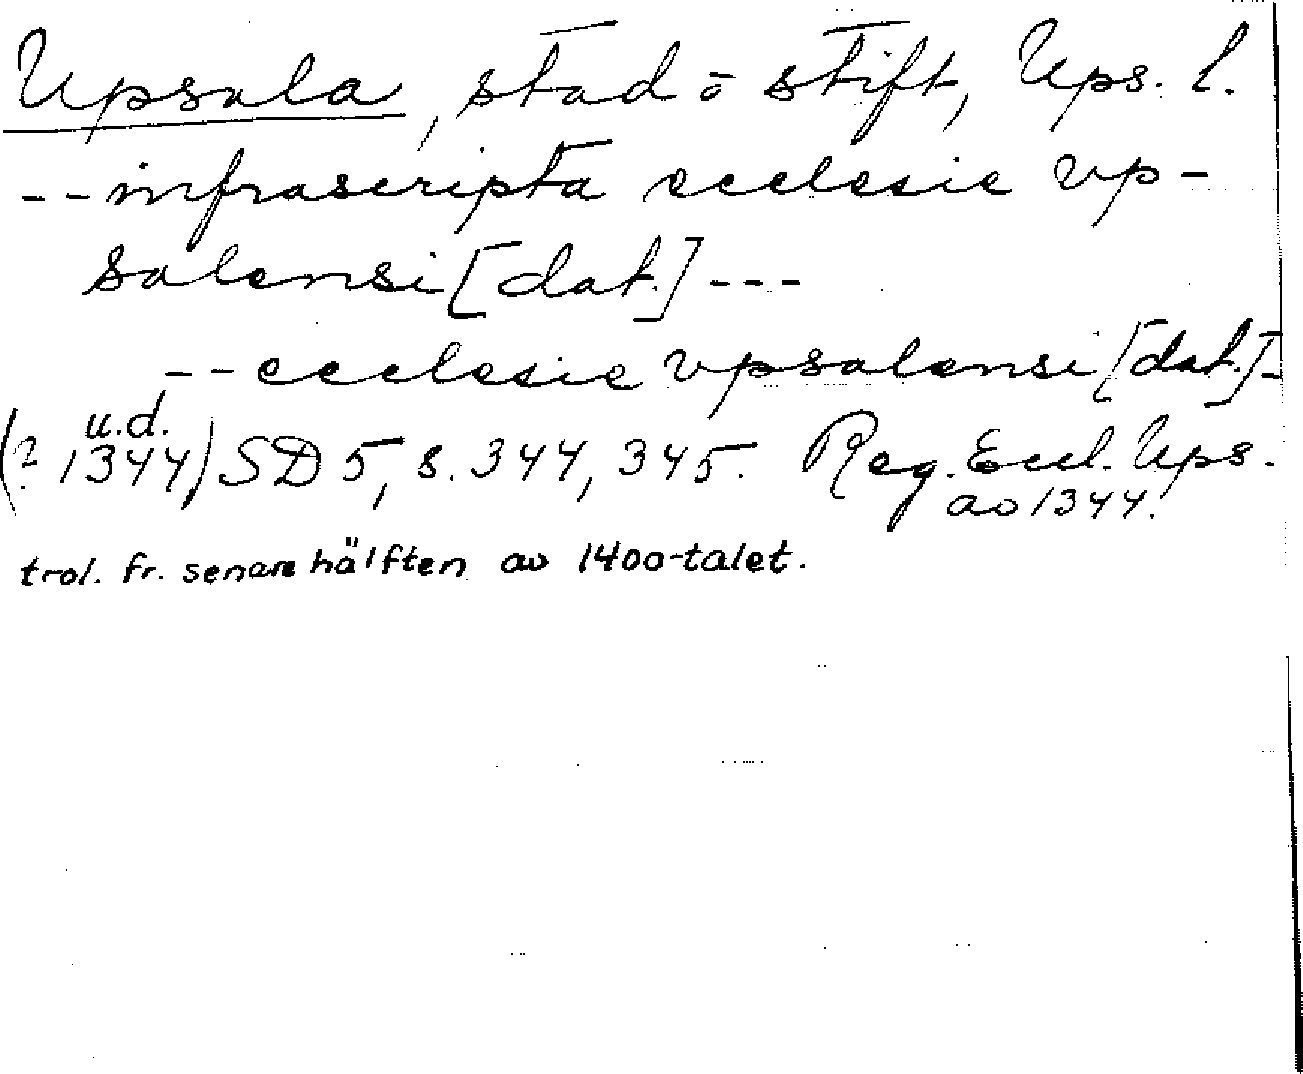 Upsala, stad o stift, Ups. l.
-- infrascripta ecclesie vp-
salensi [dat.] ---
-- ecclesie vpsalensi [dat.] -
u.d.
(? 1344) SD 5, s. 344, 345. Reg. Eccl. Ups.
ao 1344.
trol. fr. senare hälften av 1400-talet.